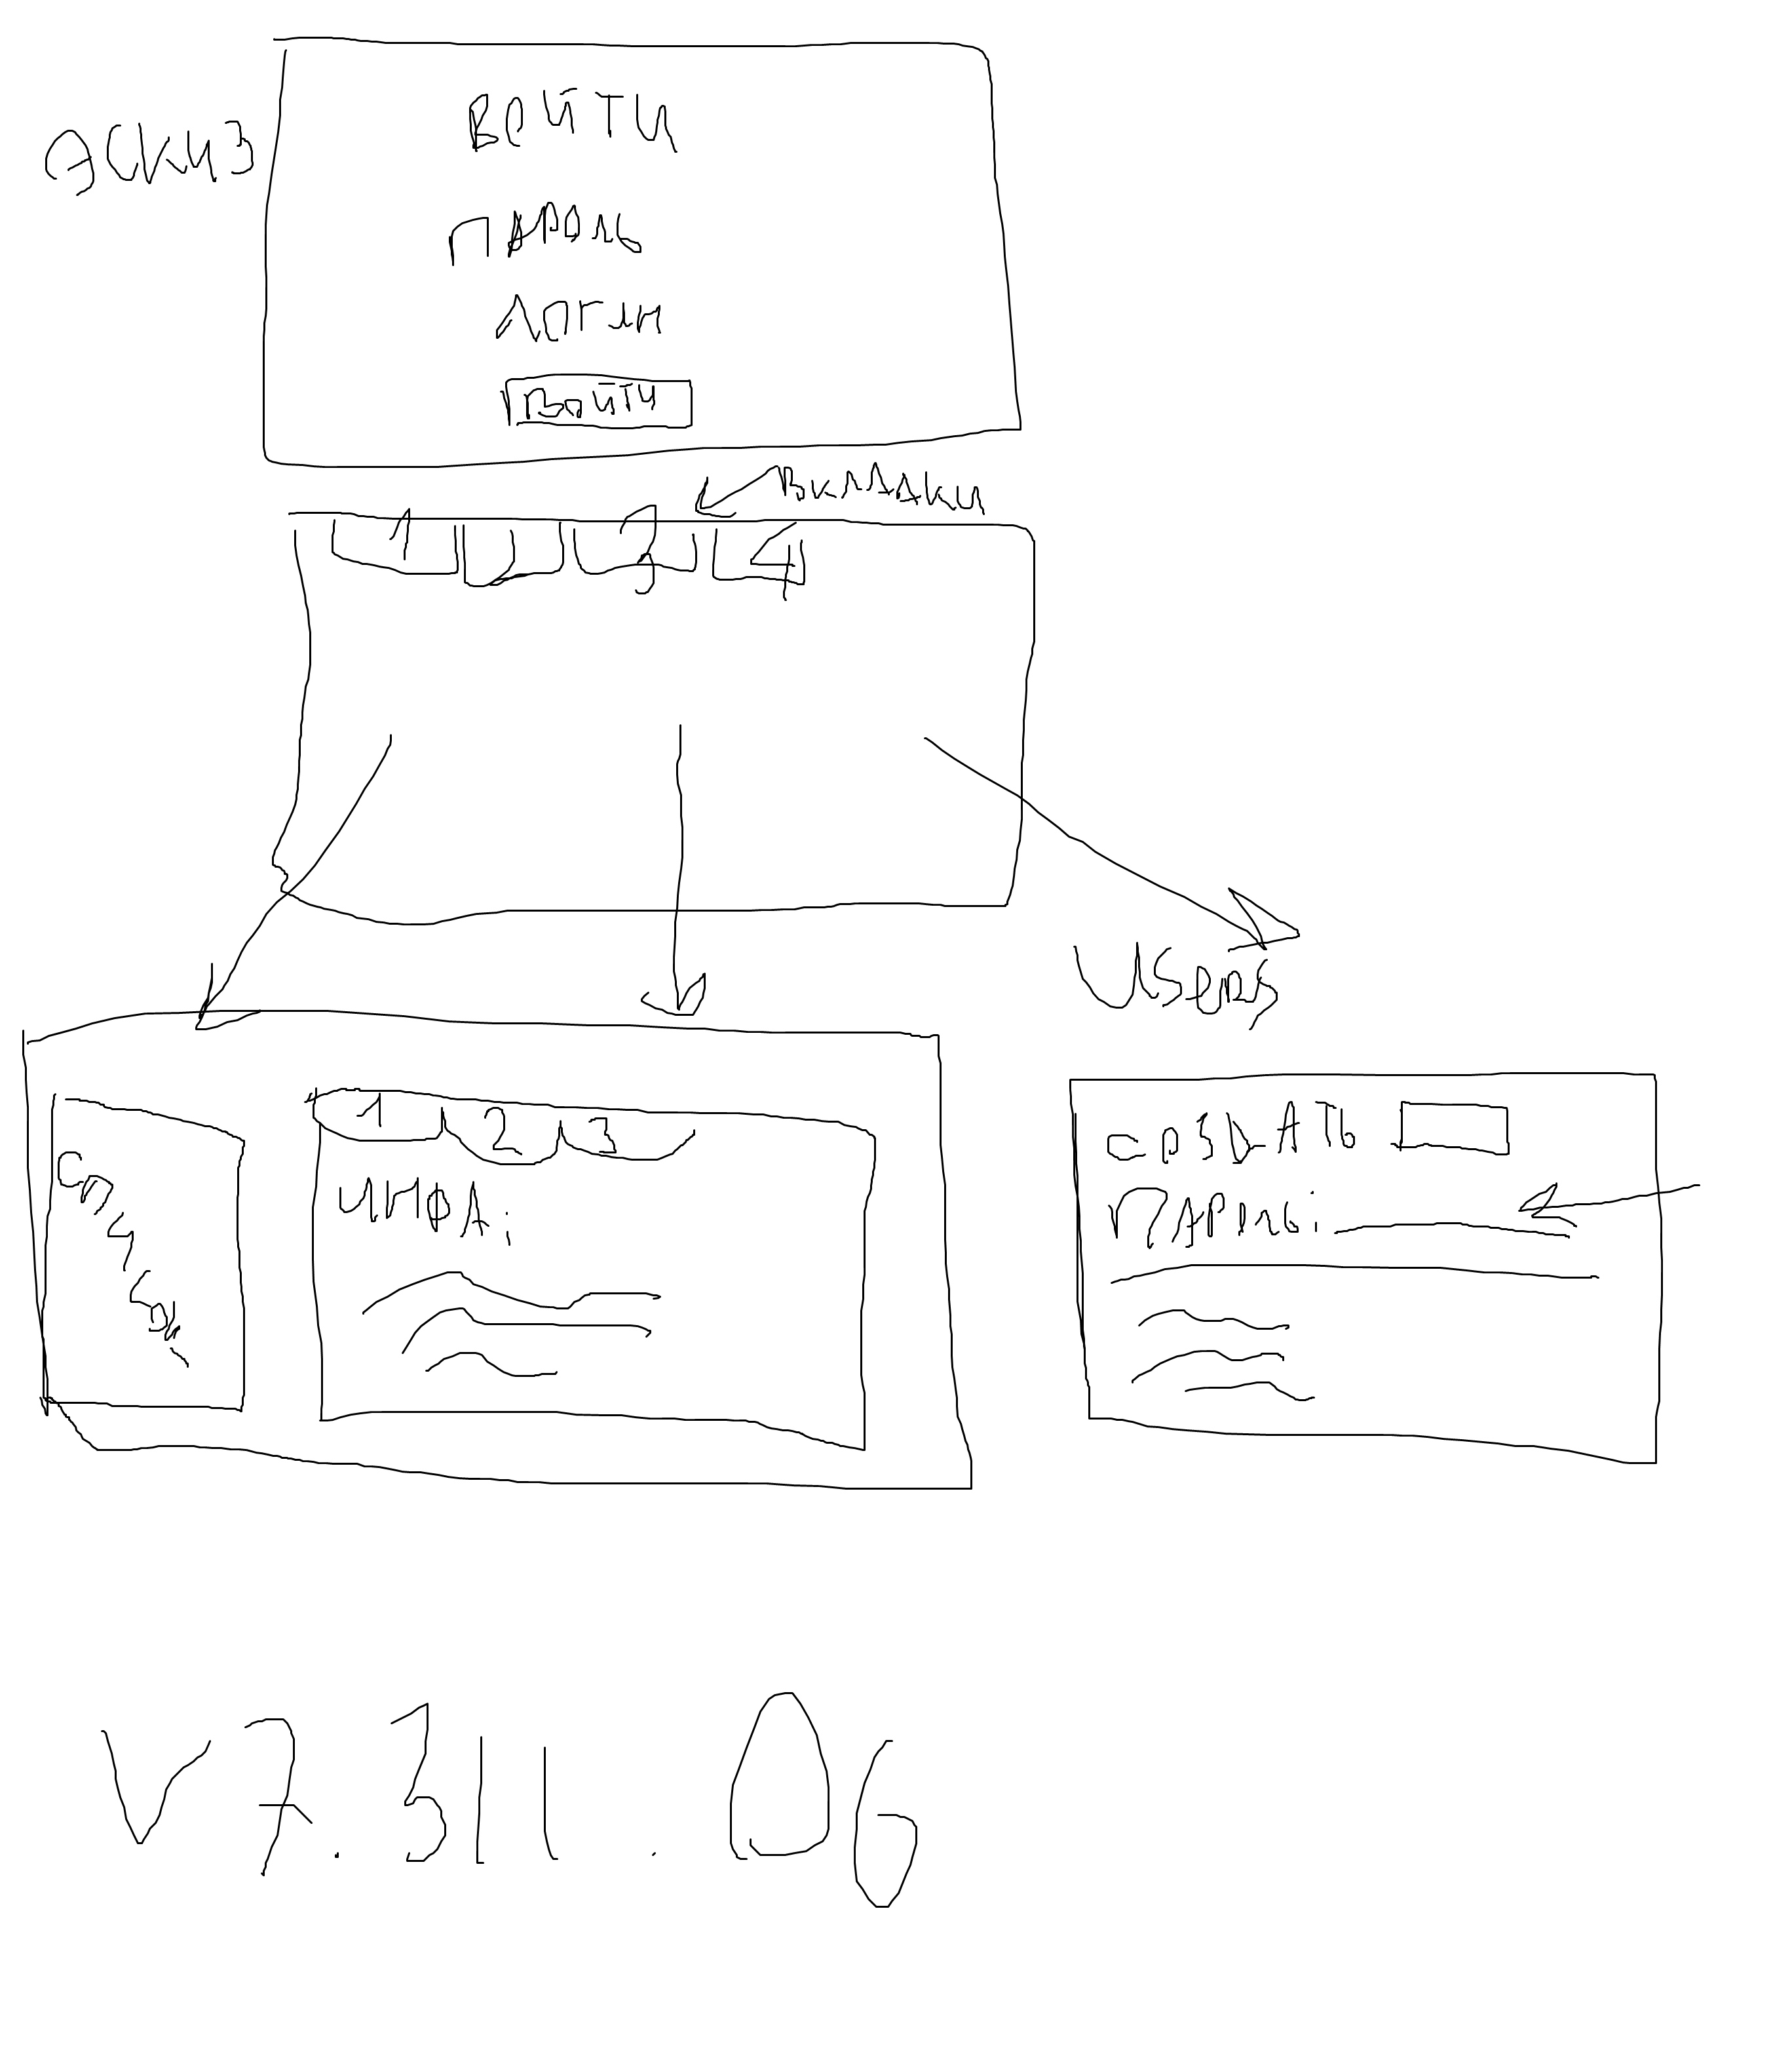 эскиз
ВОЙТИ
ПАРОЛЬ
ЛОГИН
ВОЙТИ
ВКЛАДКИ
1 2 3 4
USERS
1 2 3
ИНФА:
СОЗДАТЬ
ПАРОЛЬ:
V7.311.06